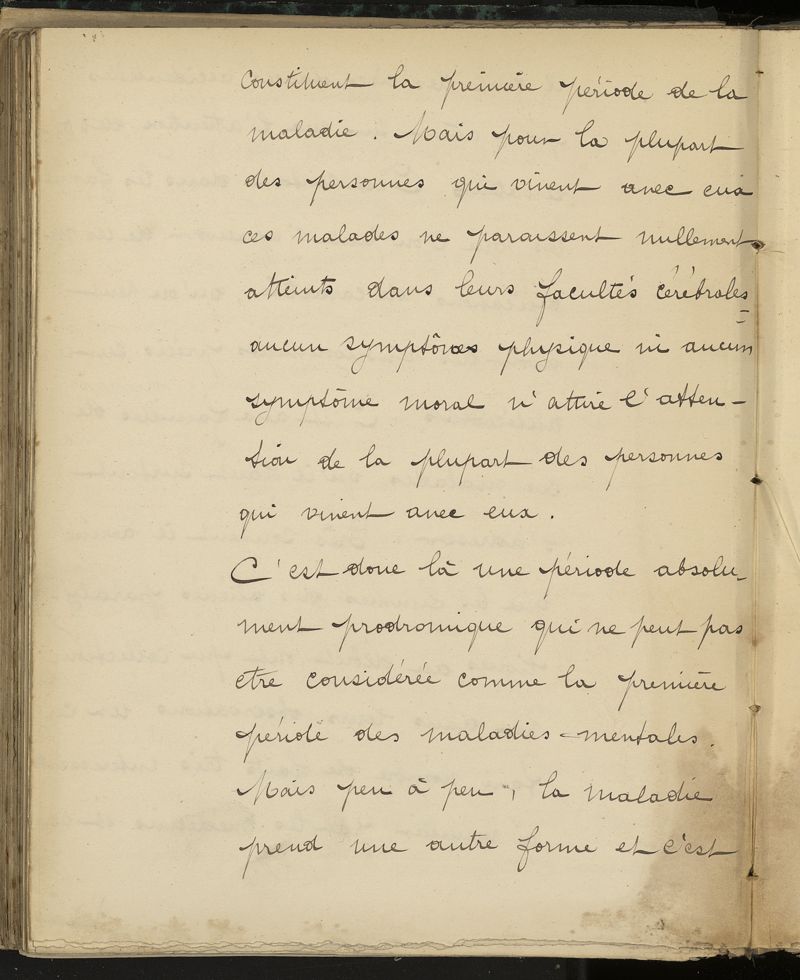 constituent la première période de la
maladie. Mais pour la plupart
des personnes qui vivent avec eux
ces malades ne paraissent nullement
atteints dans leurs facultés cérébrales
aucun symptômes physique ni aucun
symptôme moral n'attire l'atten-
tion de la plupart des personnes
qui vivent avec eux.
C'est donc là une période absolu-
ment prodromique qui ne peut pas
etre considérée comme la première
période des maladies-mentales.
Mais peu à peu, la maladie
prend une autre forme et c'est